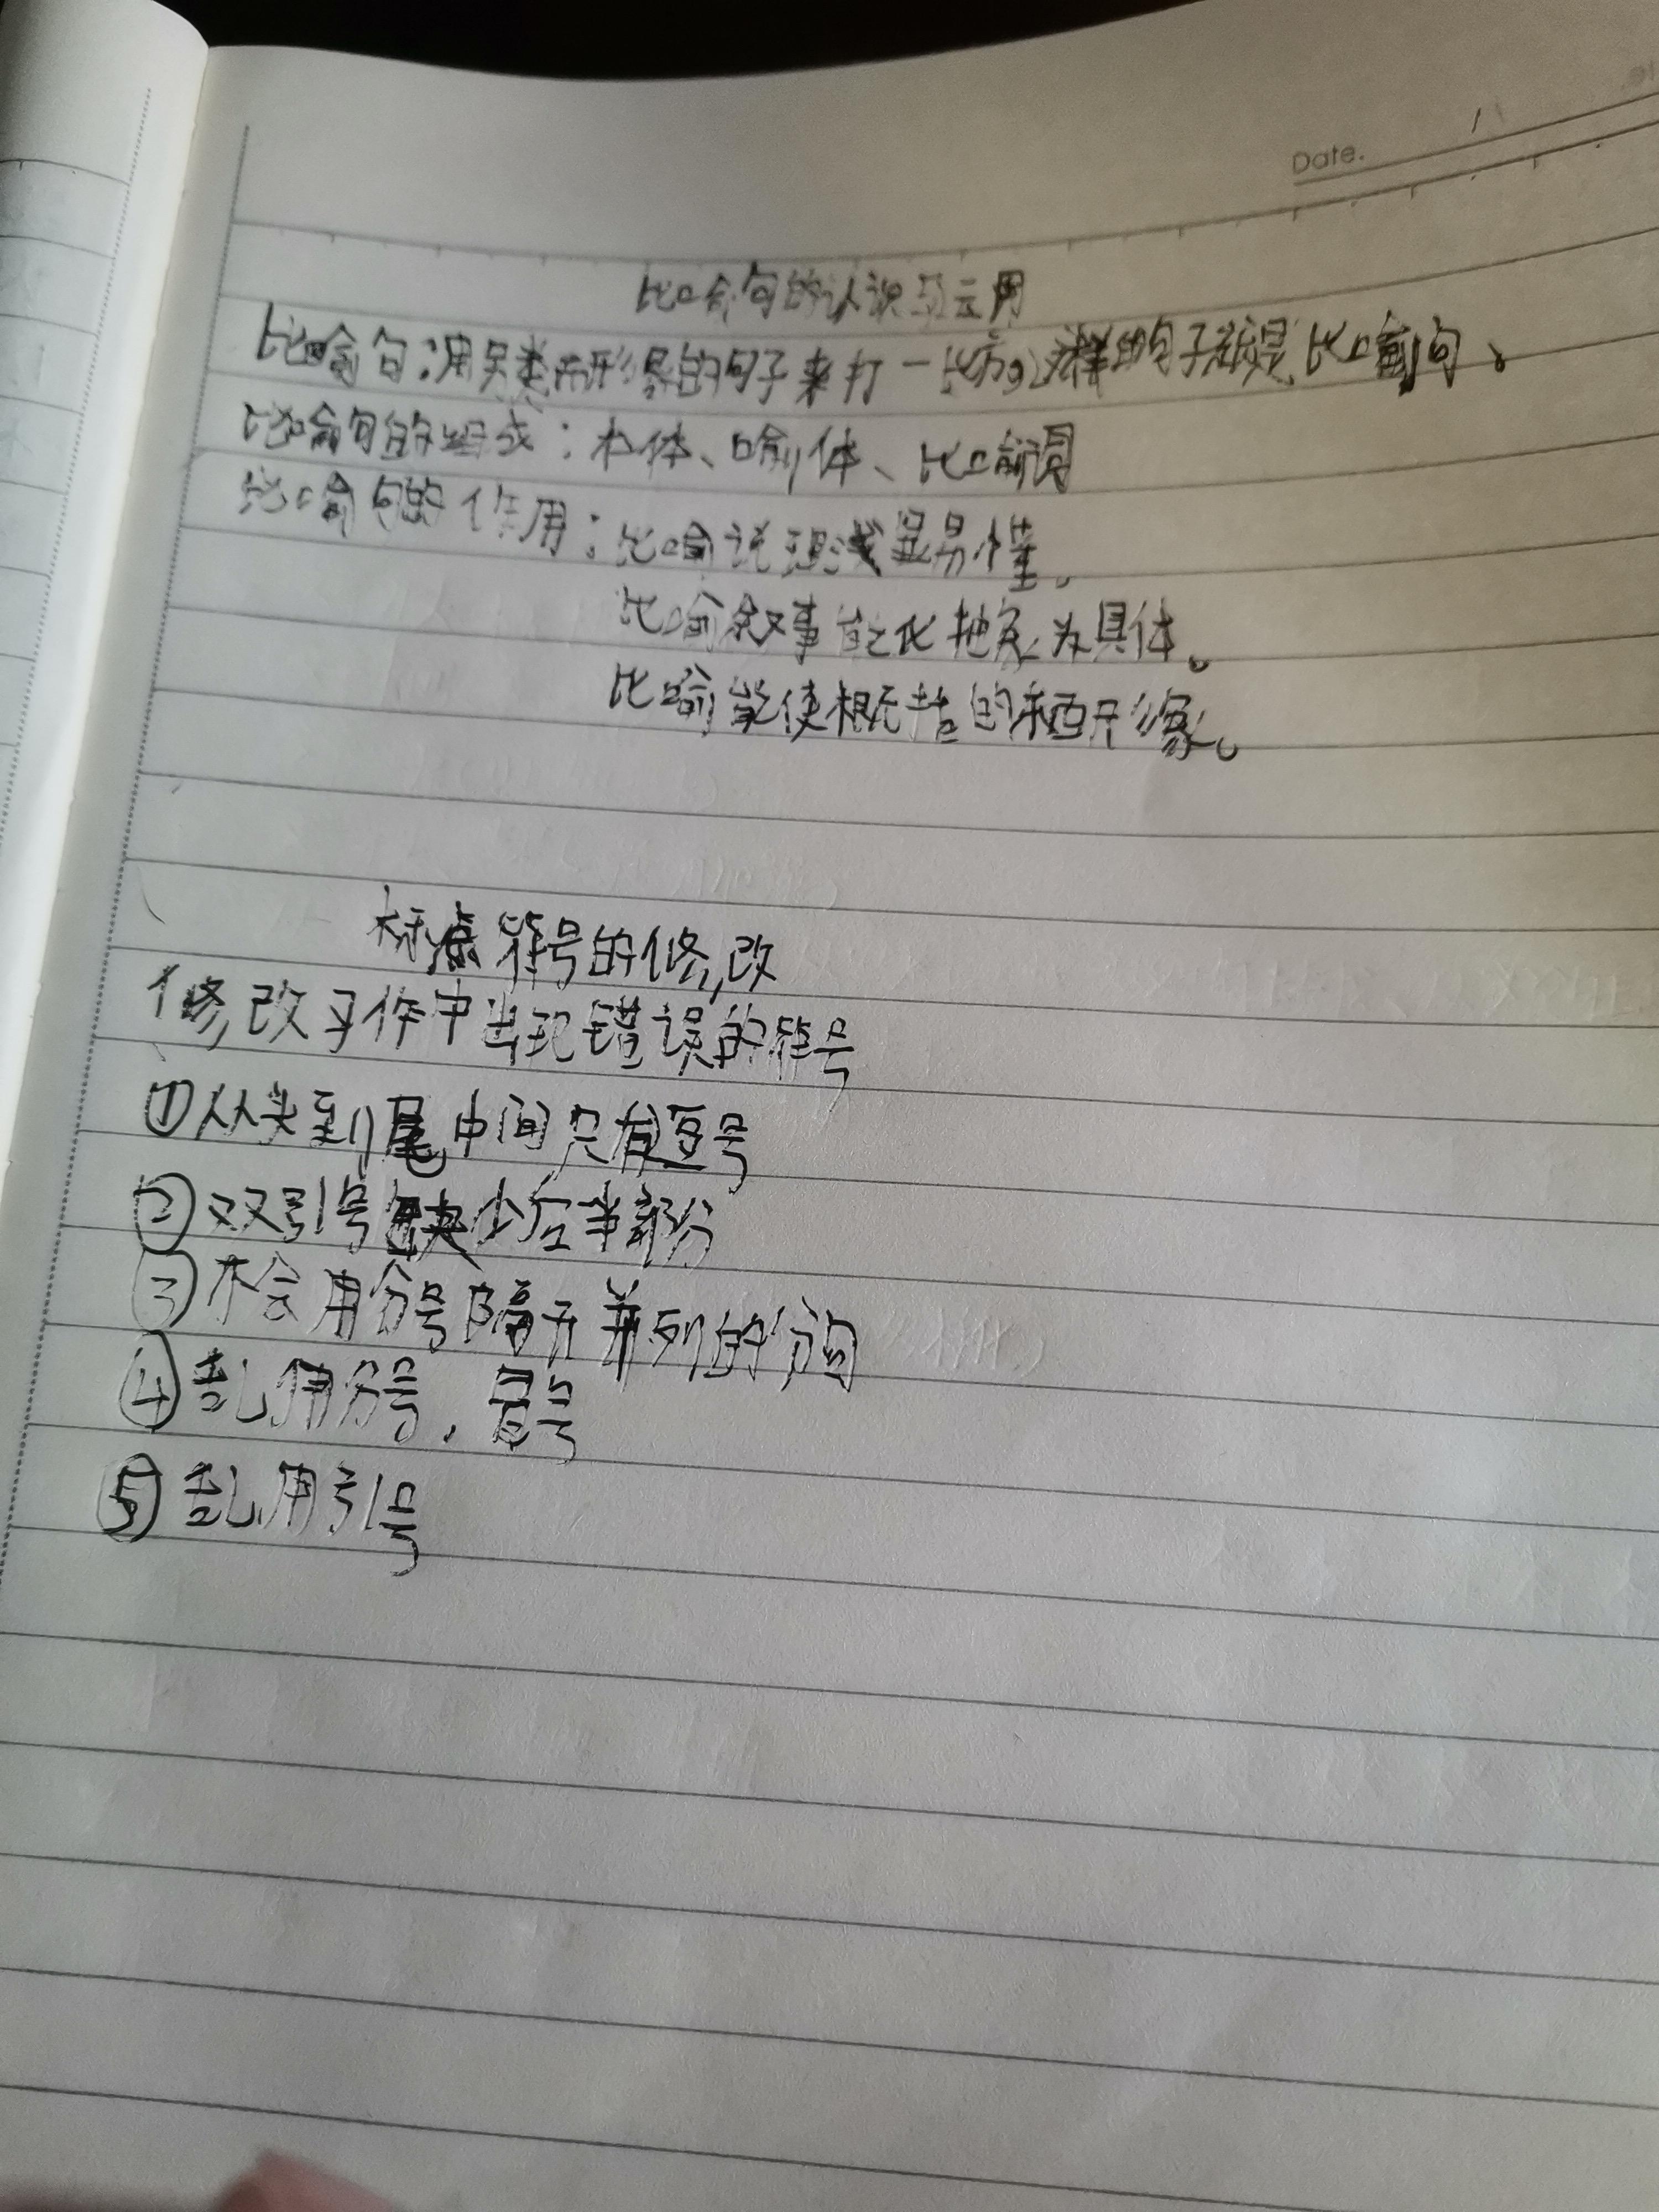 Date.
比喻句的认识与云用
比喻句:用另类而形象的句子来打一比方。这样的句子就是比喻句、
比喻句的组成:本体、喻体、比喻词
比喻句的作用:比喻说理浅显易懂。
比喻叙事能化抽象为具体。
比喻能使概括的东西形象。
标点符号的修改
修改习作中出现错误的符号
①从头到尾中间只有逗号
②双引号缺少后半部分
③不会用分号隔开并列的分句
④乱用分号、冒号
⑤乱用引号